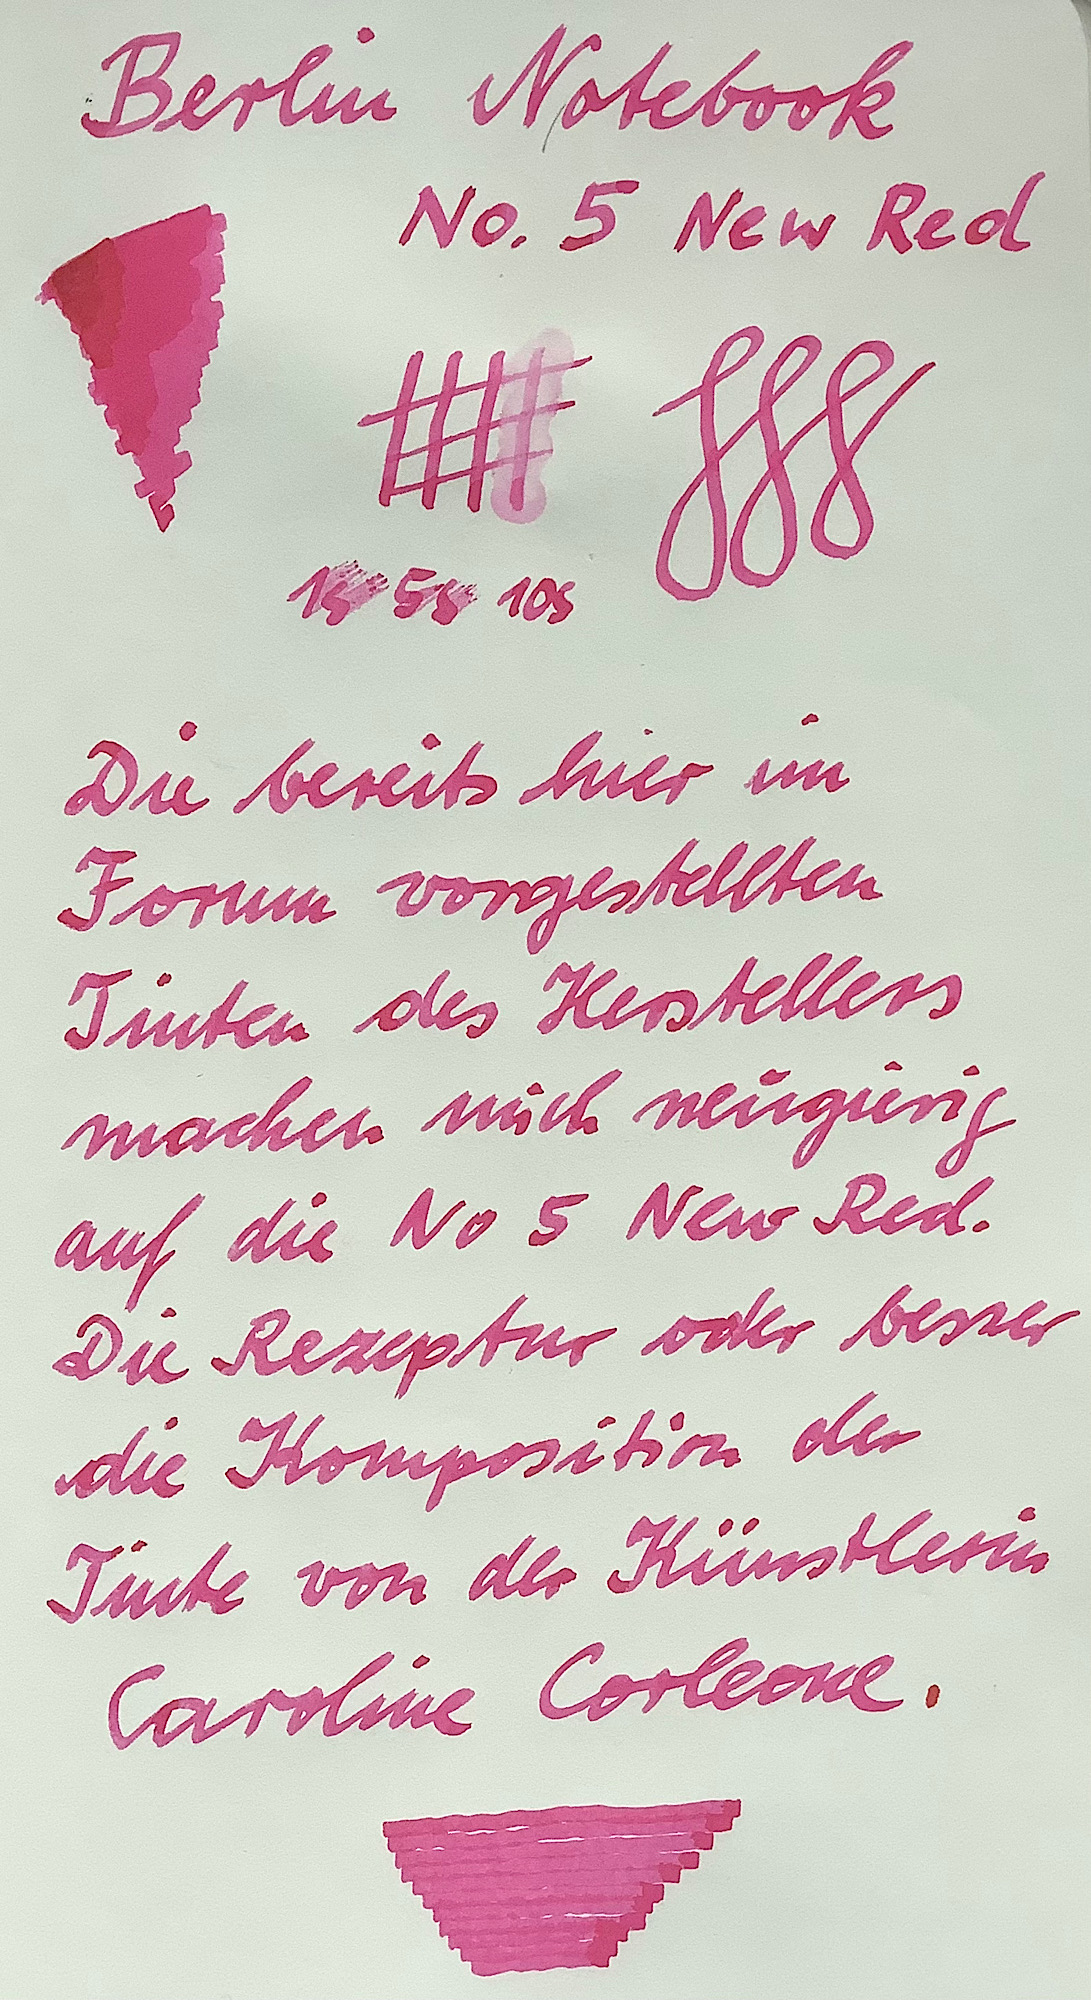 Berlin Notebook
No. 5 New Red
1s 5s 10s
Die bereits hier im
Forum vorgestellten
Tinten des Herstellers
machen mich neugierig
auf die No 5 New Red.
Die Rezeptur oder besser
die Komposition der
Tinte von der Künstlerin
Caroline Corleone.